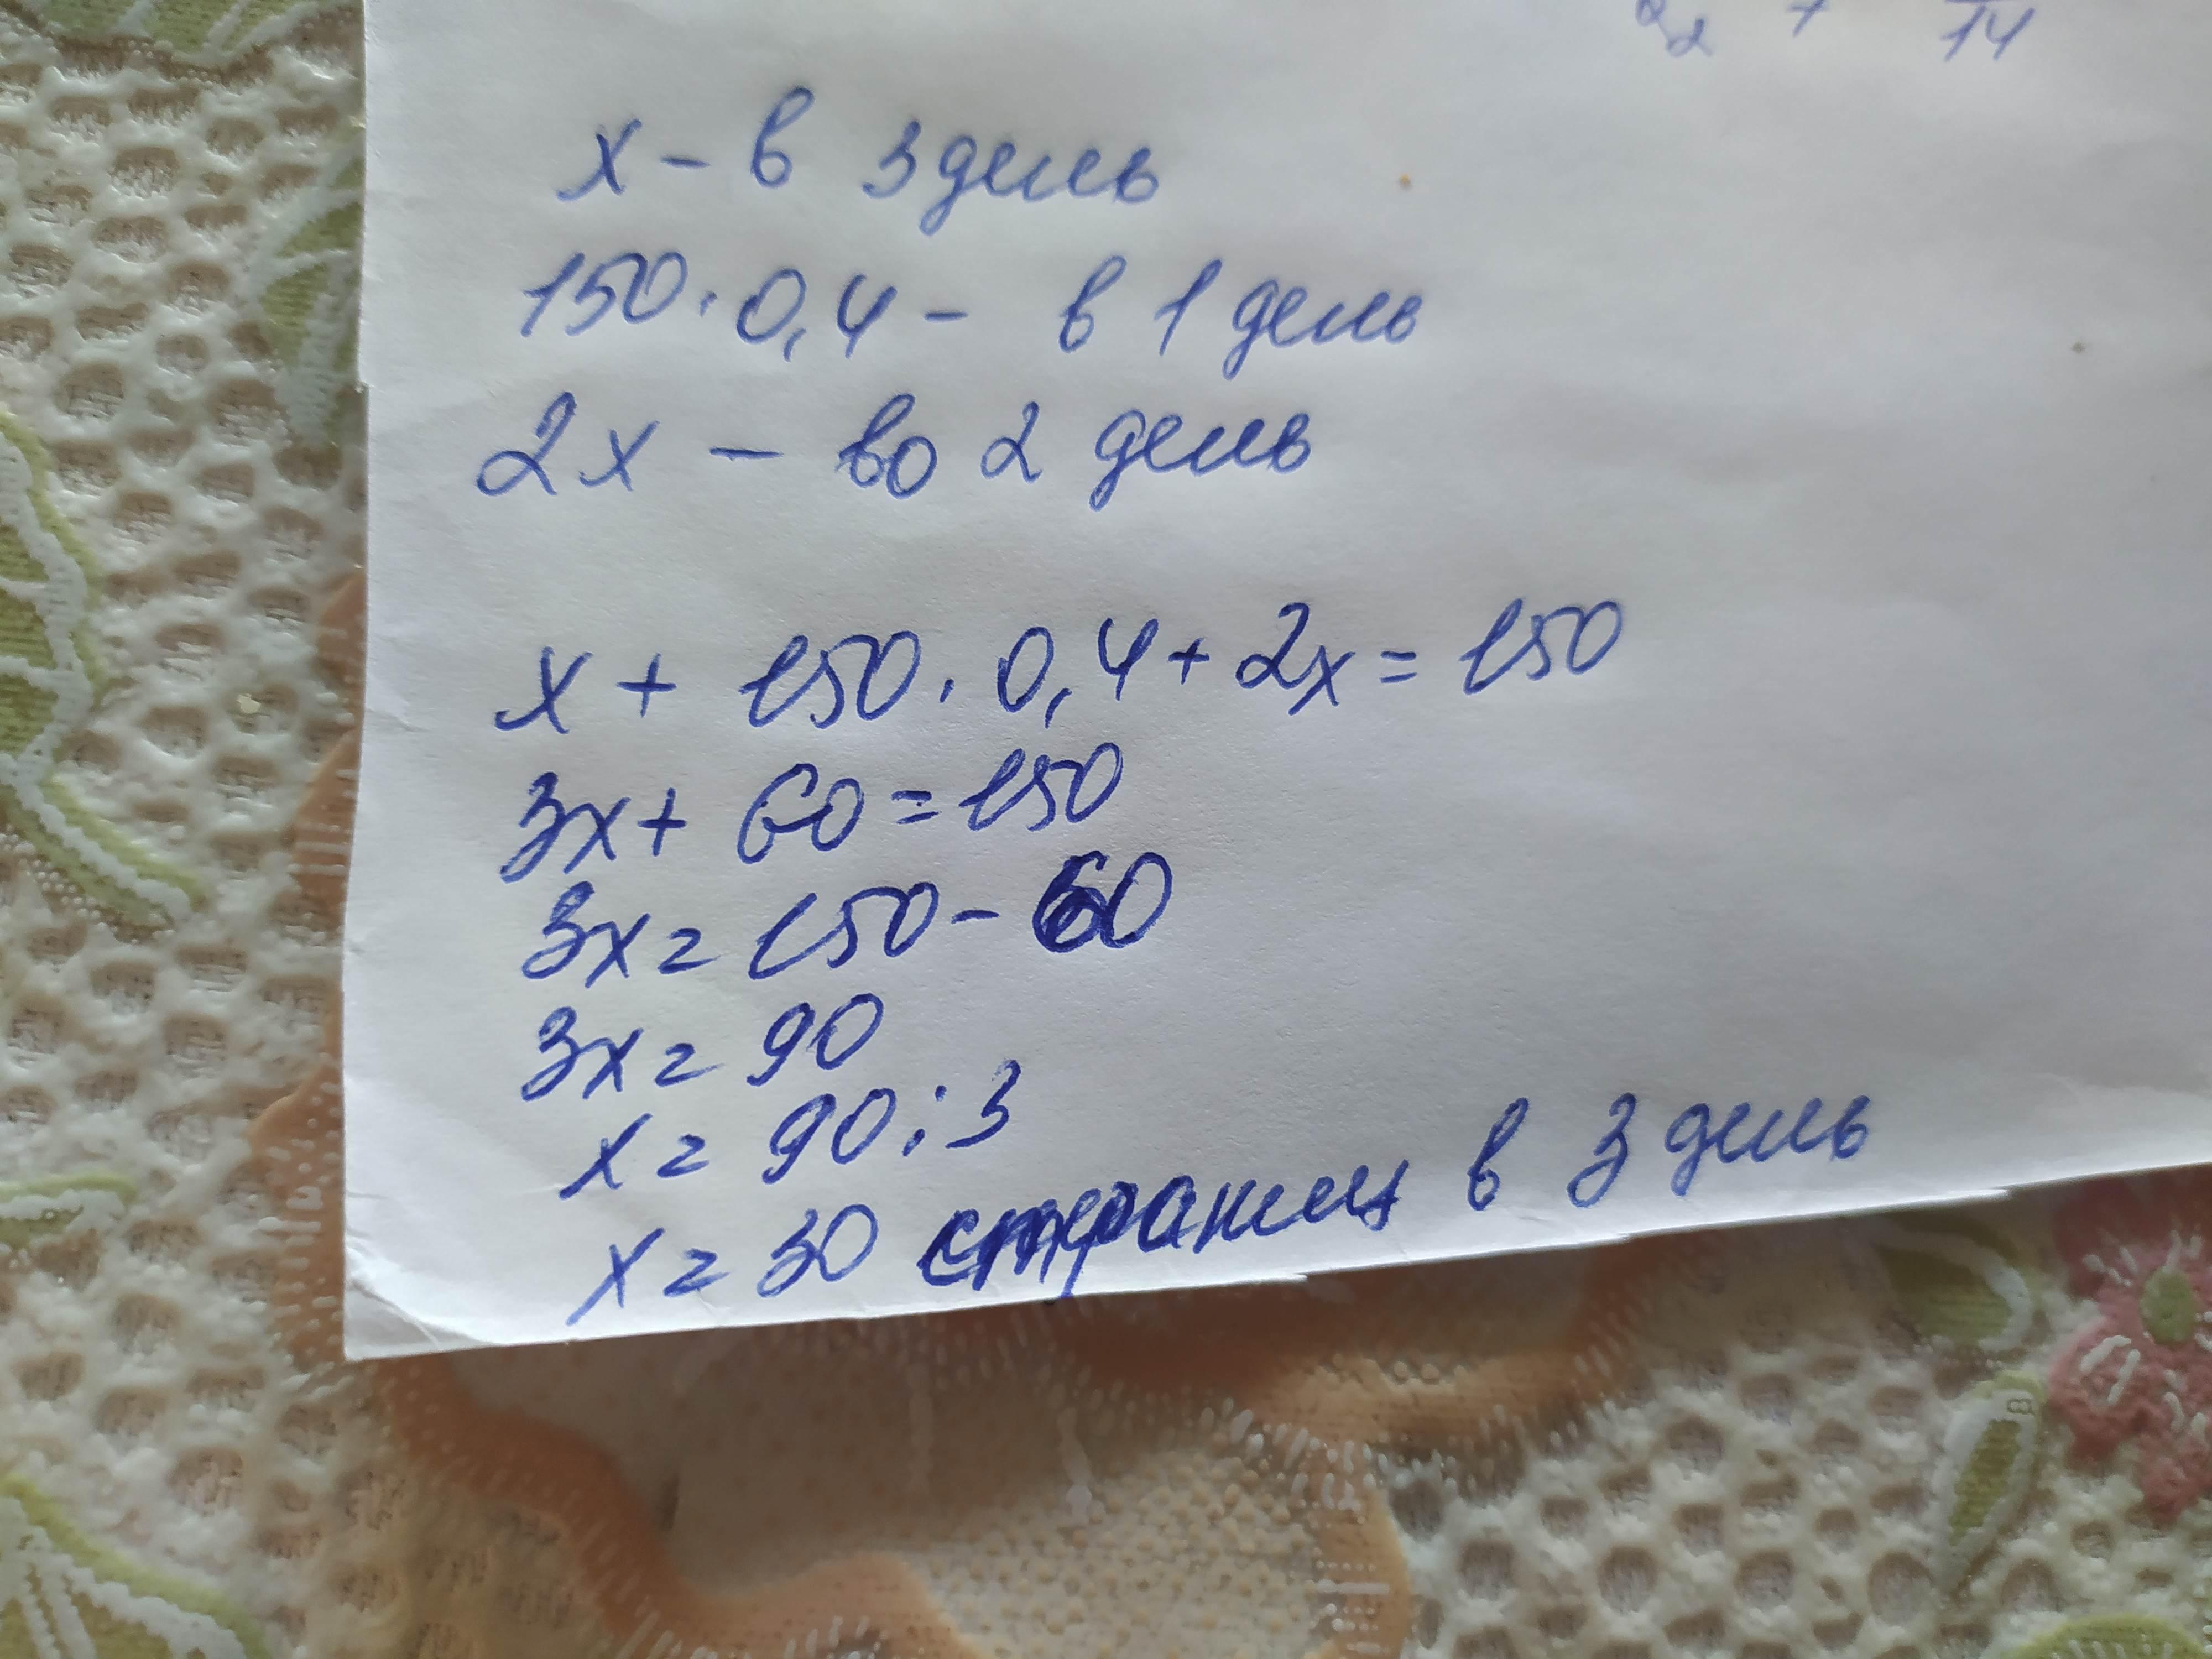 14
x - в 3 день
150 · 0,4 - в 1 день
2x - во 2 день
x + 150 · 0,4 + 2x = 150
3x + 60 = 150
3x = 150 - 60
3x = 90
x = 90 : 3
x = 30 страниц в 3 день